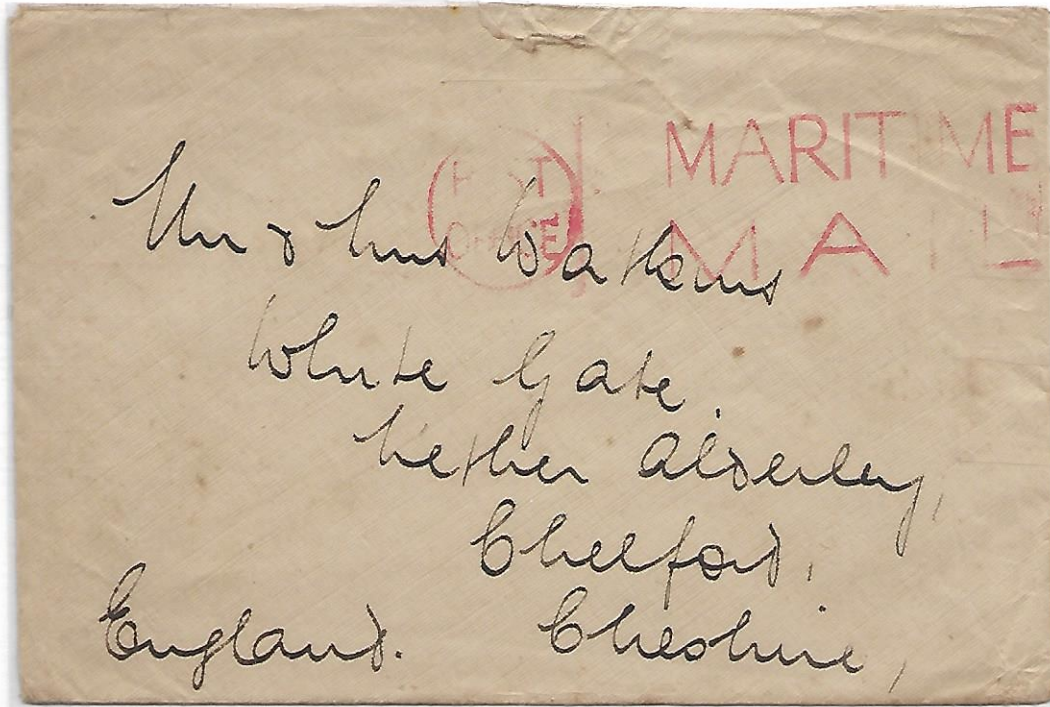 POST OFFICE
MARITIME
MAIL
Mr & Mrs Watkins
White Gate,
Nether Alderley,
Chelford,
Cheshire,
England.